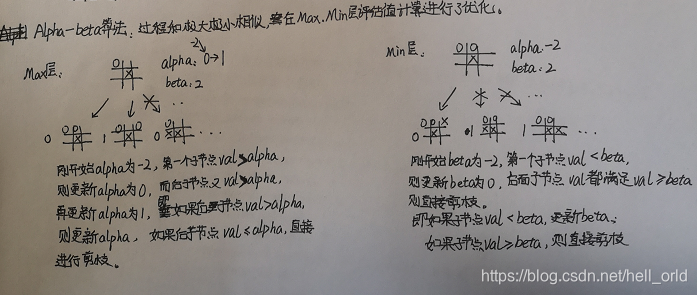 Alpha-beta算法: 过程和极大极小相似, 在Max, Min层评估值计算进行了优化。
Max层:
-2
alpha: 0→1
beta: 2
...
0 1 0 ...
刚开始alpha为-2, 第一个子节点val>alpha,
则更新alpha为0, 而后子节点又val>alpha,
再更新alpha为1, 即如果后子节点val>alpha,
则更新alpha, 如果后子节点val≤alpha, 直接
进行剪枝。
Min层:
alpha: -2
beta: 2
...
0 1 ...
刚开始beta为-2, 第一个子节点val<beta,
则更新beta为0, 后面子节点val都满足val≥beta
则直接剪枝。
即如果子节点val<beta, 更新beta,
如果子节点val≥beta, 则直接剪枝
https://blog.csdn.net/hell_orld